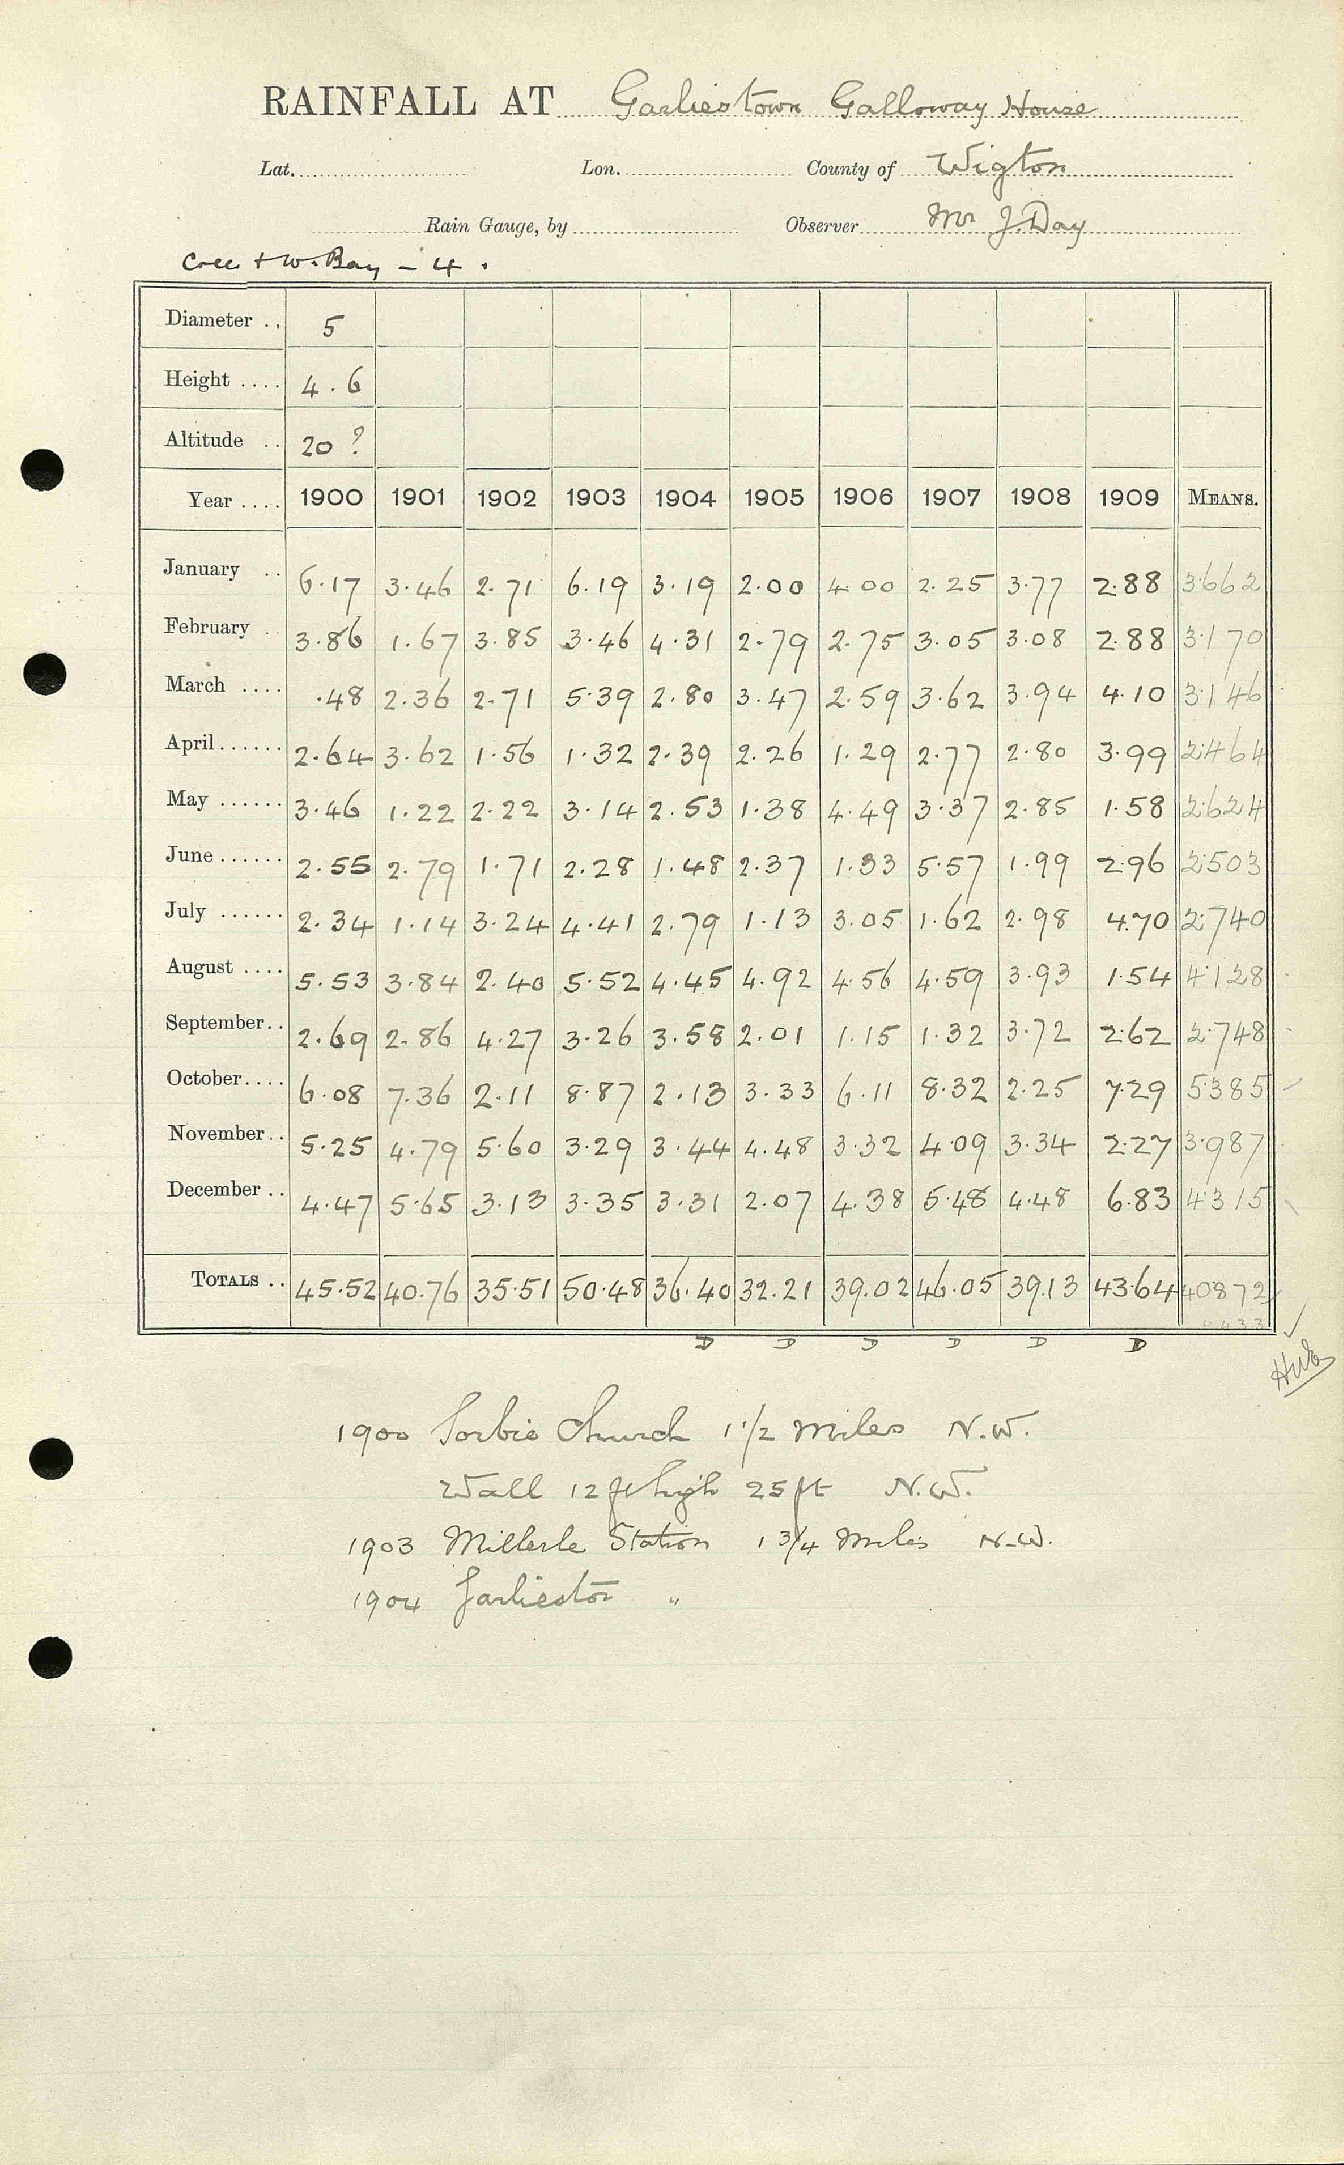 RAINFALL AT Garliestown Galloway House
Lat. Lon. County of Wigton
Rain Gauge, by Observer Mr J. Day
Cree + W. Bay - 4.
Diameter .. 5
Height .... 4.6
Altitude .. 20 ?
Year .... 1900 1901 1902 1903 1904 1905 1906 1907 1908 1909 MEANS.
January .. 6.17 3.46 2.71 6.19 3.19 2.00 4.00 2.25 3.77 2.88 3.662
February .. 3.86 1.67 3.85 3.46 4.31 2.79 2.75 3.05 3.08 2.88 3.170
March .... .48 2.36 2.71 5.39 2.80 3.47 2.59 3.62 3.94 4.10 3.146
April...... 2.64 3.62 1.56 1.32 2.39 2.26 1.29 2.77 2.80 3.99 2.464
May ...... 3.46 1.22 2.22 3.14 2.53 1.38 4.49 3.37 2.85 1.58 2.624
June...... 2.55 2.79 1.71 2.28 1.48 2.37 1.33 5.57 1.99 2.96 2.503
July ...... 2.34 1.14 3.24 4.41 2.79 1.13 3.05 1.62 2.98 4.70 2.740
August .... 5.53 3.84 2.40 5.52 4.45 4.92 4.56 4.59 3.93 1.54 4.128
September.. 2.69 2.86 4.27 3.26 3.58 2.01 1.15 1.32 3.72 2.62 2.748
October.... 6.08 7.36 2.11 8.87 2.13 3.33 6.11 8.32 2.25 7.29 5.385
November.. 5.25 4.79 5.60 3.29 3.44 4.48 3.32 4.09 3.34 2.27 3.987
December .. 4.47 5.65 3.13 3.35 3.31 2.07 4.38 5.48 4.48 6.83 4.315
TOTALS .. 45.52 40.76 35.51 50.48 36.40 32.21 39.02 46.05 39.13 43.64 40.872
D D D D D D
1900 Sorbie Church 1 1/2 miles N.W.
Wall 12 ft high 25 ft N.W.
1903 Millisle Station 1 3/4 miles N.W.
1904 Garlieston "